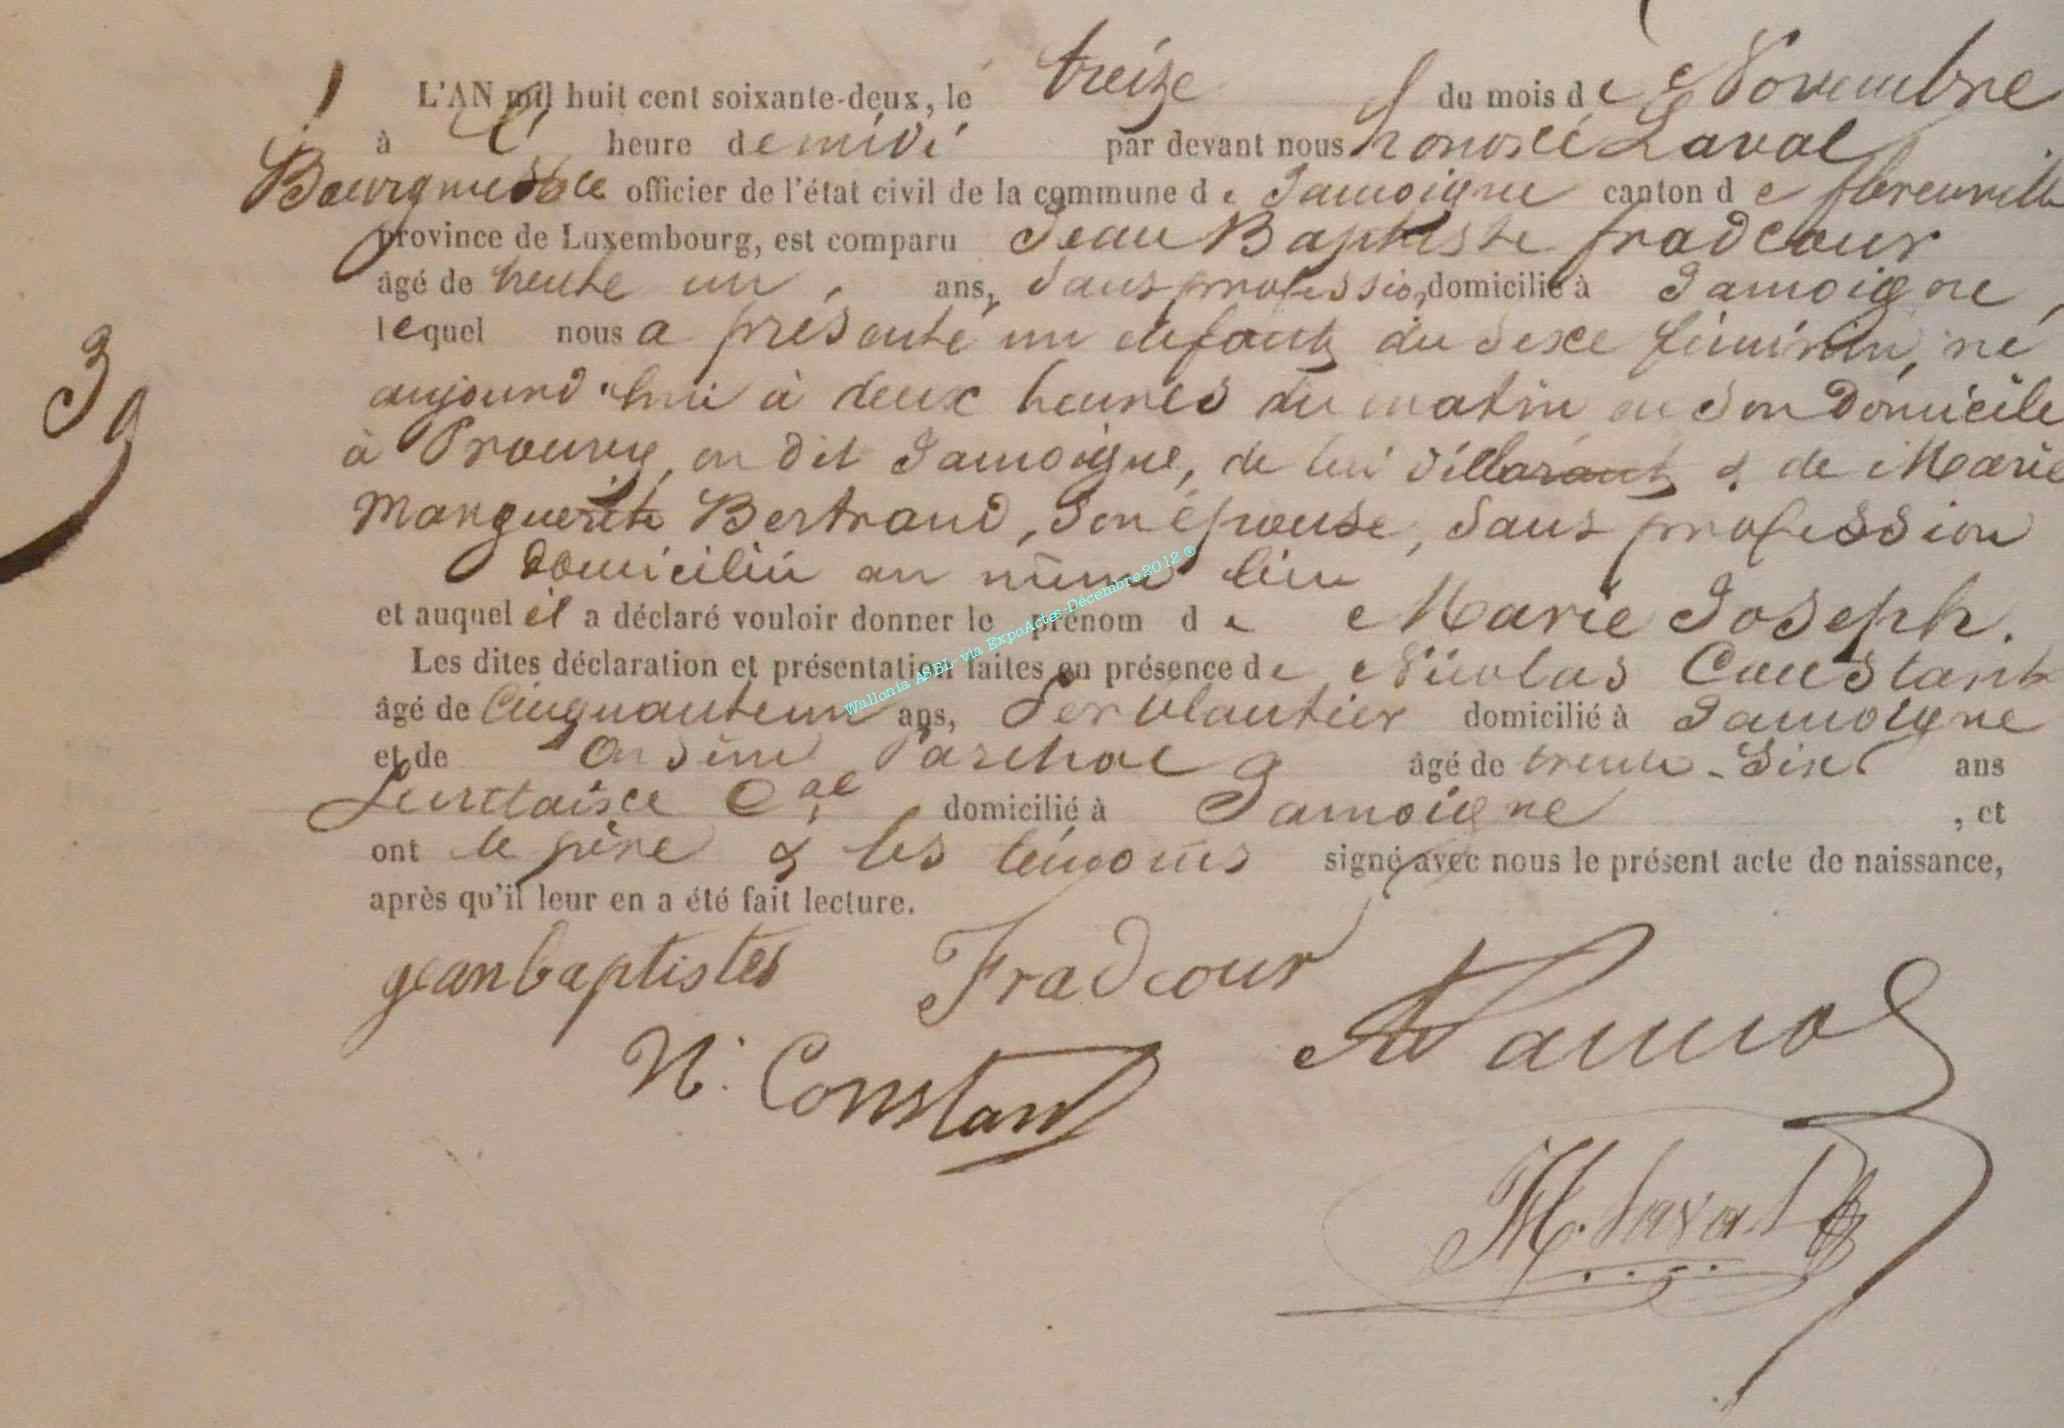 L'AN mil huit cent soixante-deux, le treize du mois de Novembre
à l' heure de midi par devant nous honoré Laval
Bourgmestre officier de l'état civil de la commune de Jamoigne canton de florenville
province de Luxembourg, est comparu Jean Baptiste fradcour
âgé de trente un ans, Sans profession, domicilié à Jamoigne,
lequel nous a présenté un enfant du sexe féminin, né
aujourd'hui à deux heures du matin en son domicile
à Prouvy, on dit Jamoigne, de lui déclarant & de Marie
Marguerite Bertrand, son épouse, sans profession
domiciliée au même lieu
et auquel il a déclaré vouloir donner le prénom de Marie Joseph.
Les dites déclaration et présentation faites en présence de Nicolas Constant
âgé de Cinquante un ans, ferblantier domicilié à Jamoigne
et de Paschal âgé de trente-six ans
Secrétaire Cal domicilié à Jamoigne, et
ont le père & les témoins signé avec nous le présent acte de naissance,
après qu'il leur en a été fait lecture.
39
jeanbaptistes Fradcour
N. Constant
H. Laval
Wallonia ASBL via ExpoActes-Décembre 2012 ©